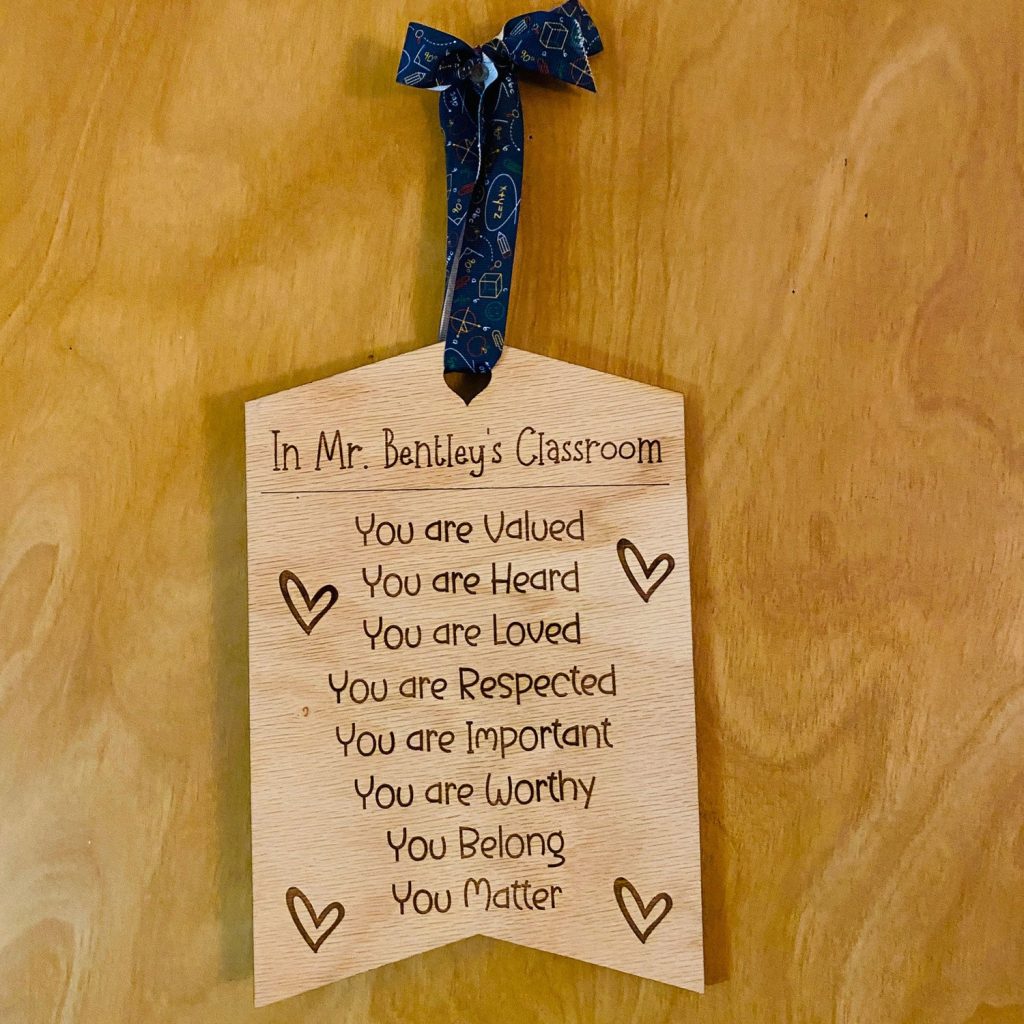 x+y=z
In Mr. Bentley's Classroom
You are Valued
You are Heard
You are Loved
You are Respected
You are Important
You are Worthy
You Belong
You Matter